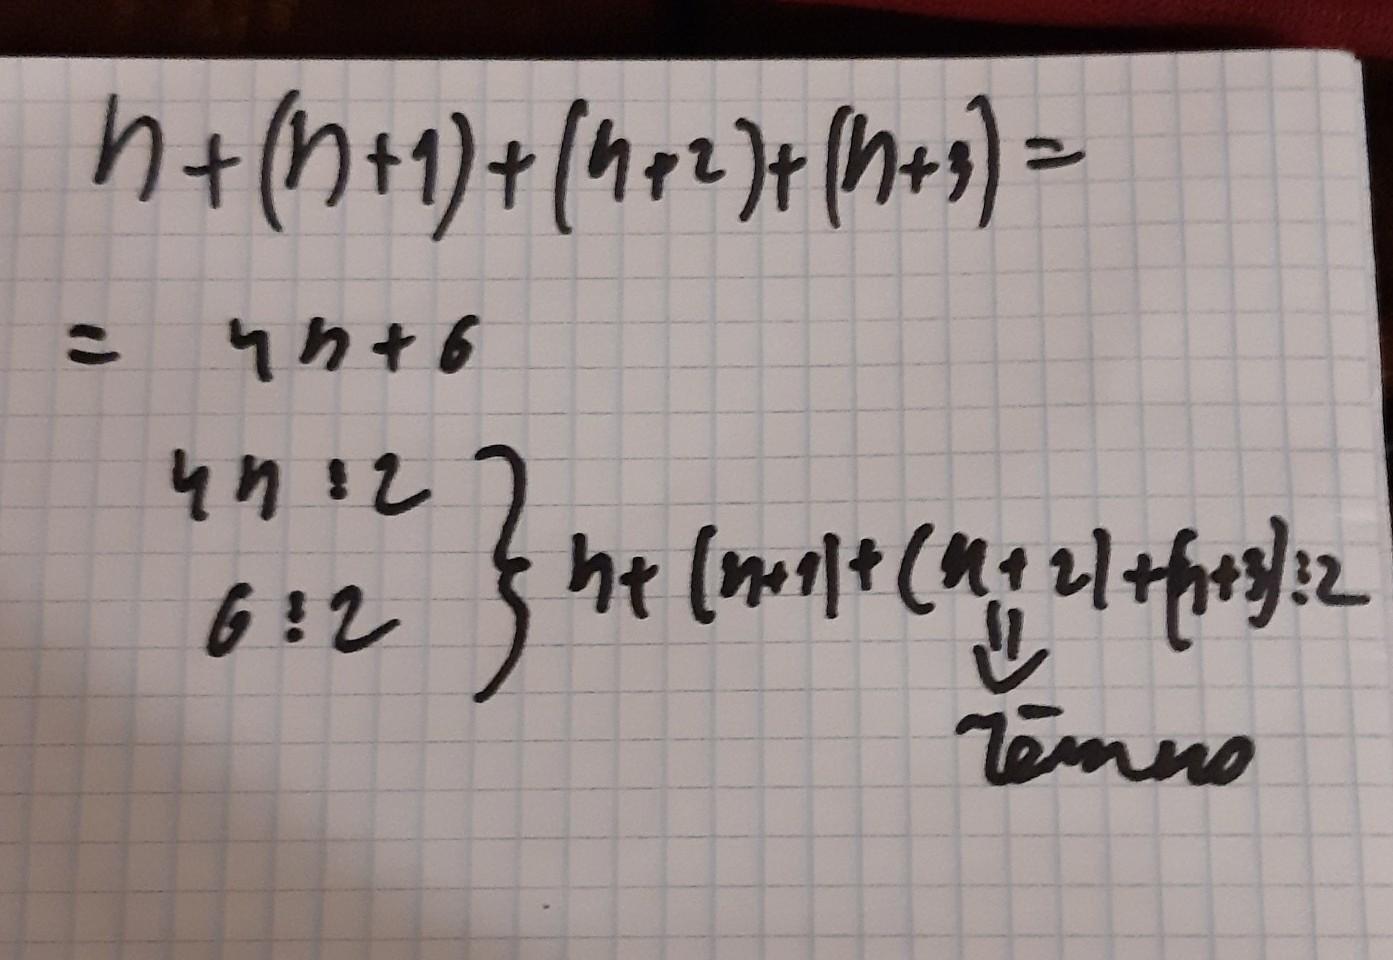 n+(n+1)+(n+2)+(n+3)=
= 4n+6
4n⋮2
6⋮2
} n+(n+1)+(n+2)+(n+3)⋮2
⇓
чётно